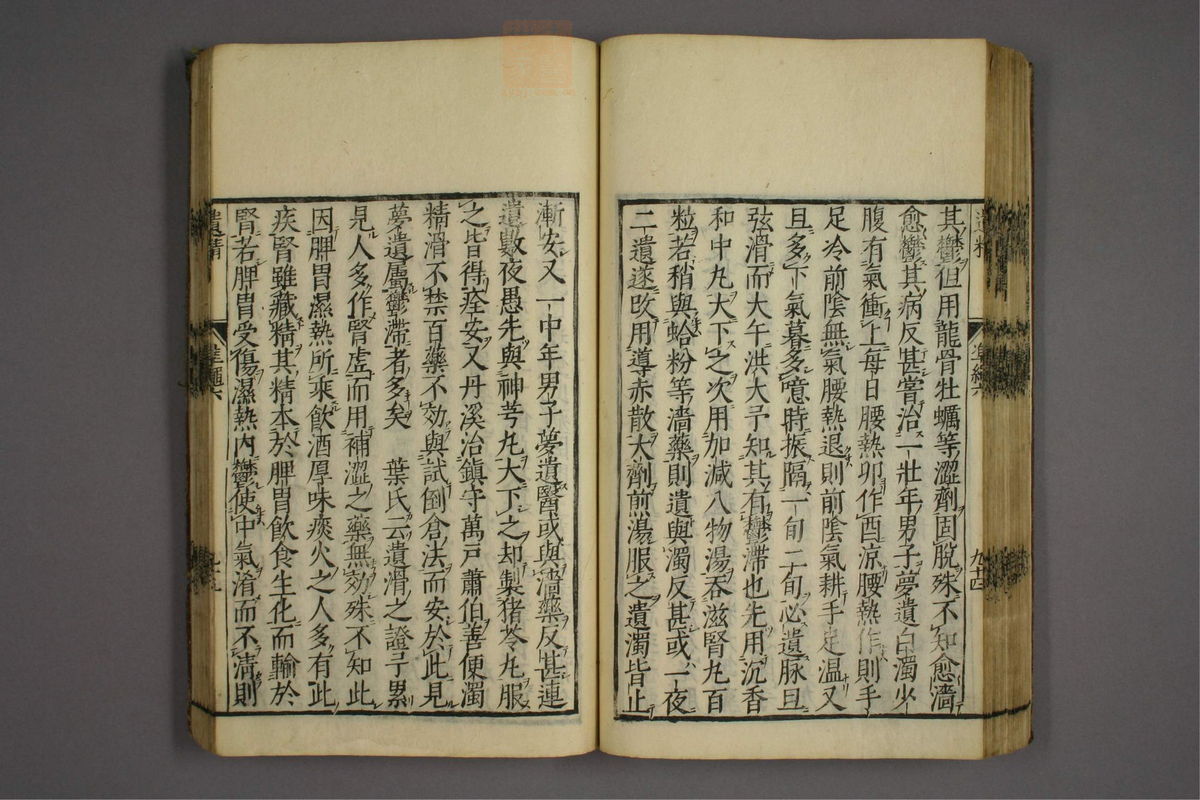 其鬱但用龍骨牡蠣等澀劑固脫殊不知愈濇
愈鬱其病反甚嘗治一壯年男子夢遺白濁少
腹有氣衝上每日腰熱卯作酉涼腰熱作則手
足冷前陰無氣腰熱退則前陰氣耕手足温又
旦多下氣暮多噫時振隔一旬二旬必遺脉旦
弦滑而大午洪大予知其有鬱滯也先用沉香
和中丸大下之次用加減八物湯吞滋腎丸百
粒若稍與蛤粉等濇藥則遺與濁反甚或一夜
二遺遂改用導赤散大劑煎湯服之遺濁皆止
漸安又一中年男子夢遺醫或與濇藥反甚連
遺數夜愚先與神芎丸大下之却製猪苓丸服
之皆得痊安又丹溪治鎮守萬戸蕭伯善便濁
精滑不禁百藥不効與試倒倉法而安於此見
夢遺屬鬱滯者多矣 葉氏云遺滑之證予累
見人多作腎虛而用補澀之藥無効殊不知此
因脾胃濕熱所乘飲酒厚味痰火之人多有此
疾腎雖藏精其精本於脾胃飲食生化而輸於
腎若脾胃受傷濕熱内鬱使中氣淆而不清則
遺精